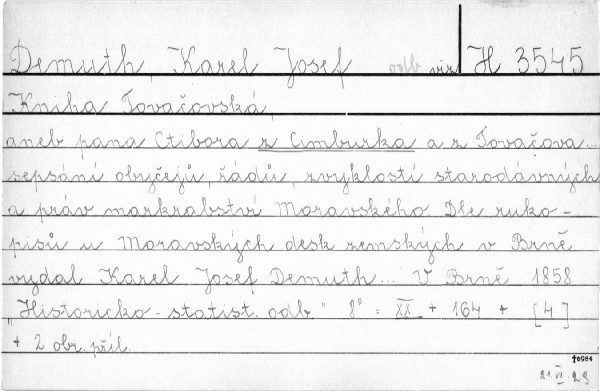 Demuth, Karel Josef odb. viz H 3545
Kniha Tovačovská,
aneb pana Ctibora z Cimburka a z Tovačova ...
sepsání obyčejů, řádů, zvyklostí starodávných
a práv markrabství Moravského. Dle ruko-
pisů u Moravských desk zemských v Brně
vydal Karel Josef Demuth ... V Brně 1858
"Historicko-statist. odb." 8° = XX + 164 + [4]
+ 2 obr. příl.
16984
21.VI.23